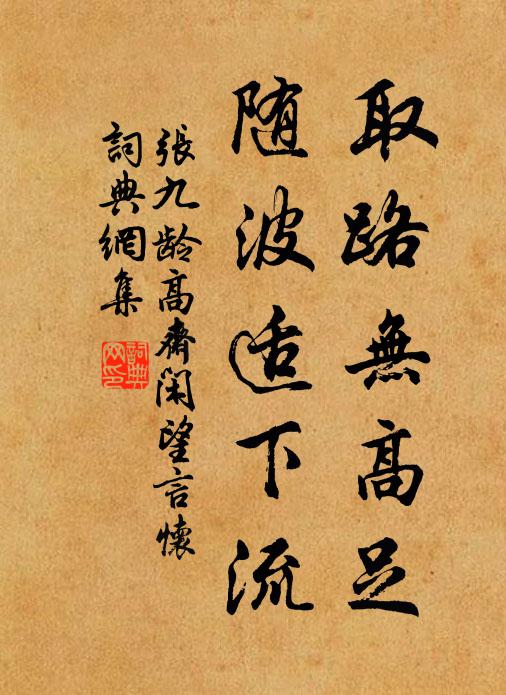 取路無高足
随波适下流
張九龄高齋閑望言懷
詞典網集
詞典網印